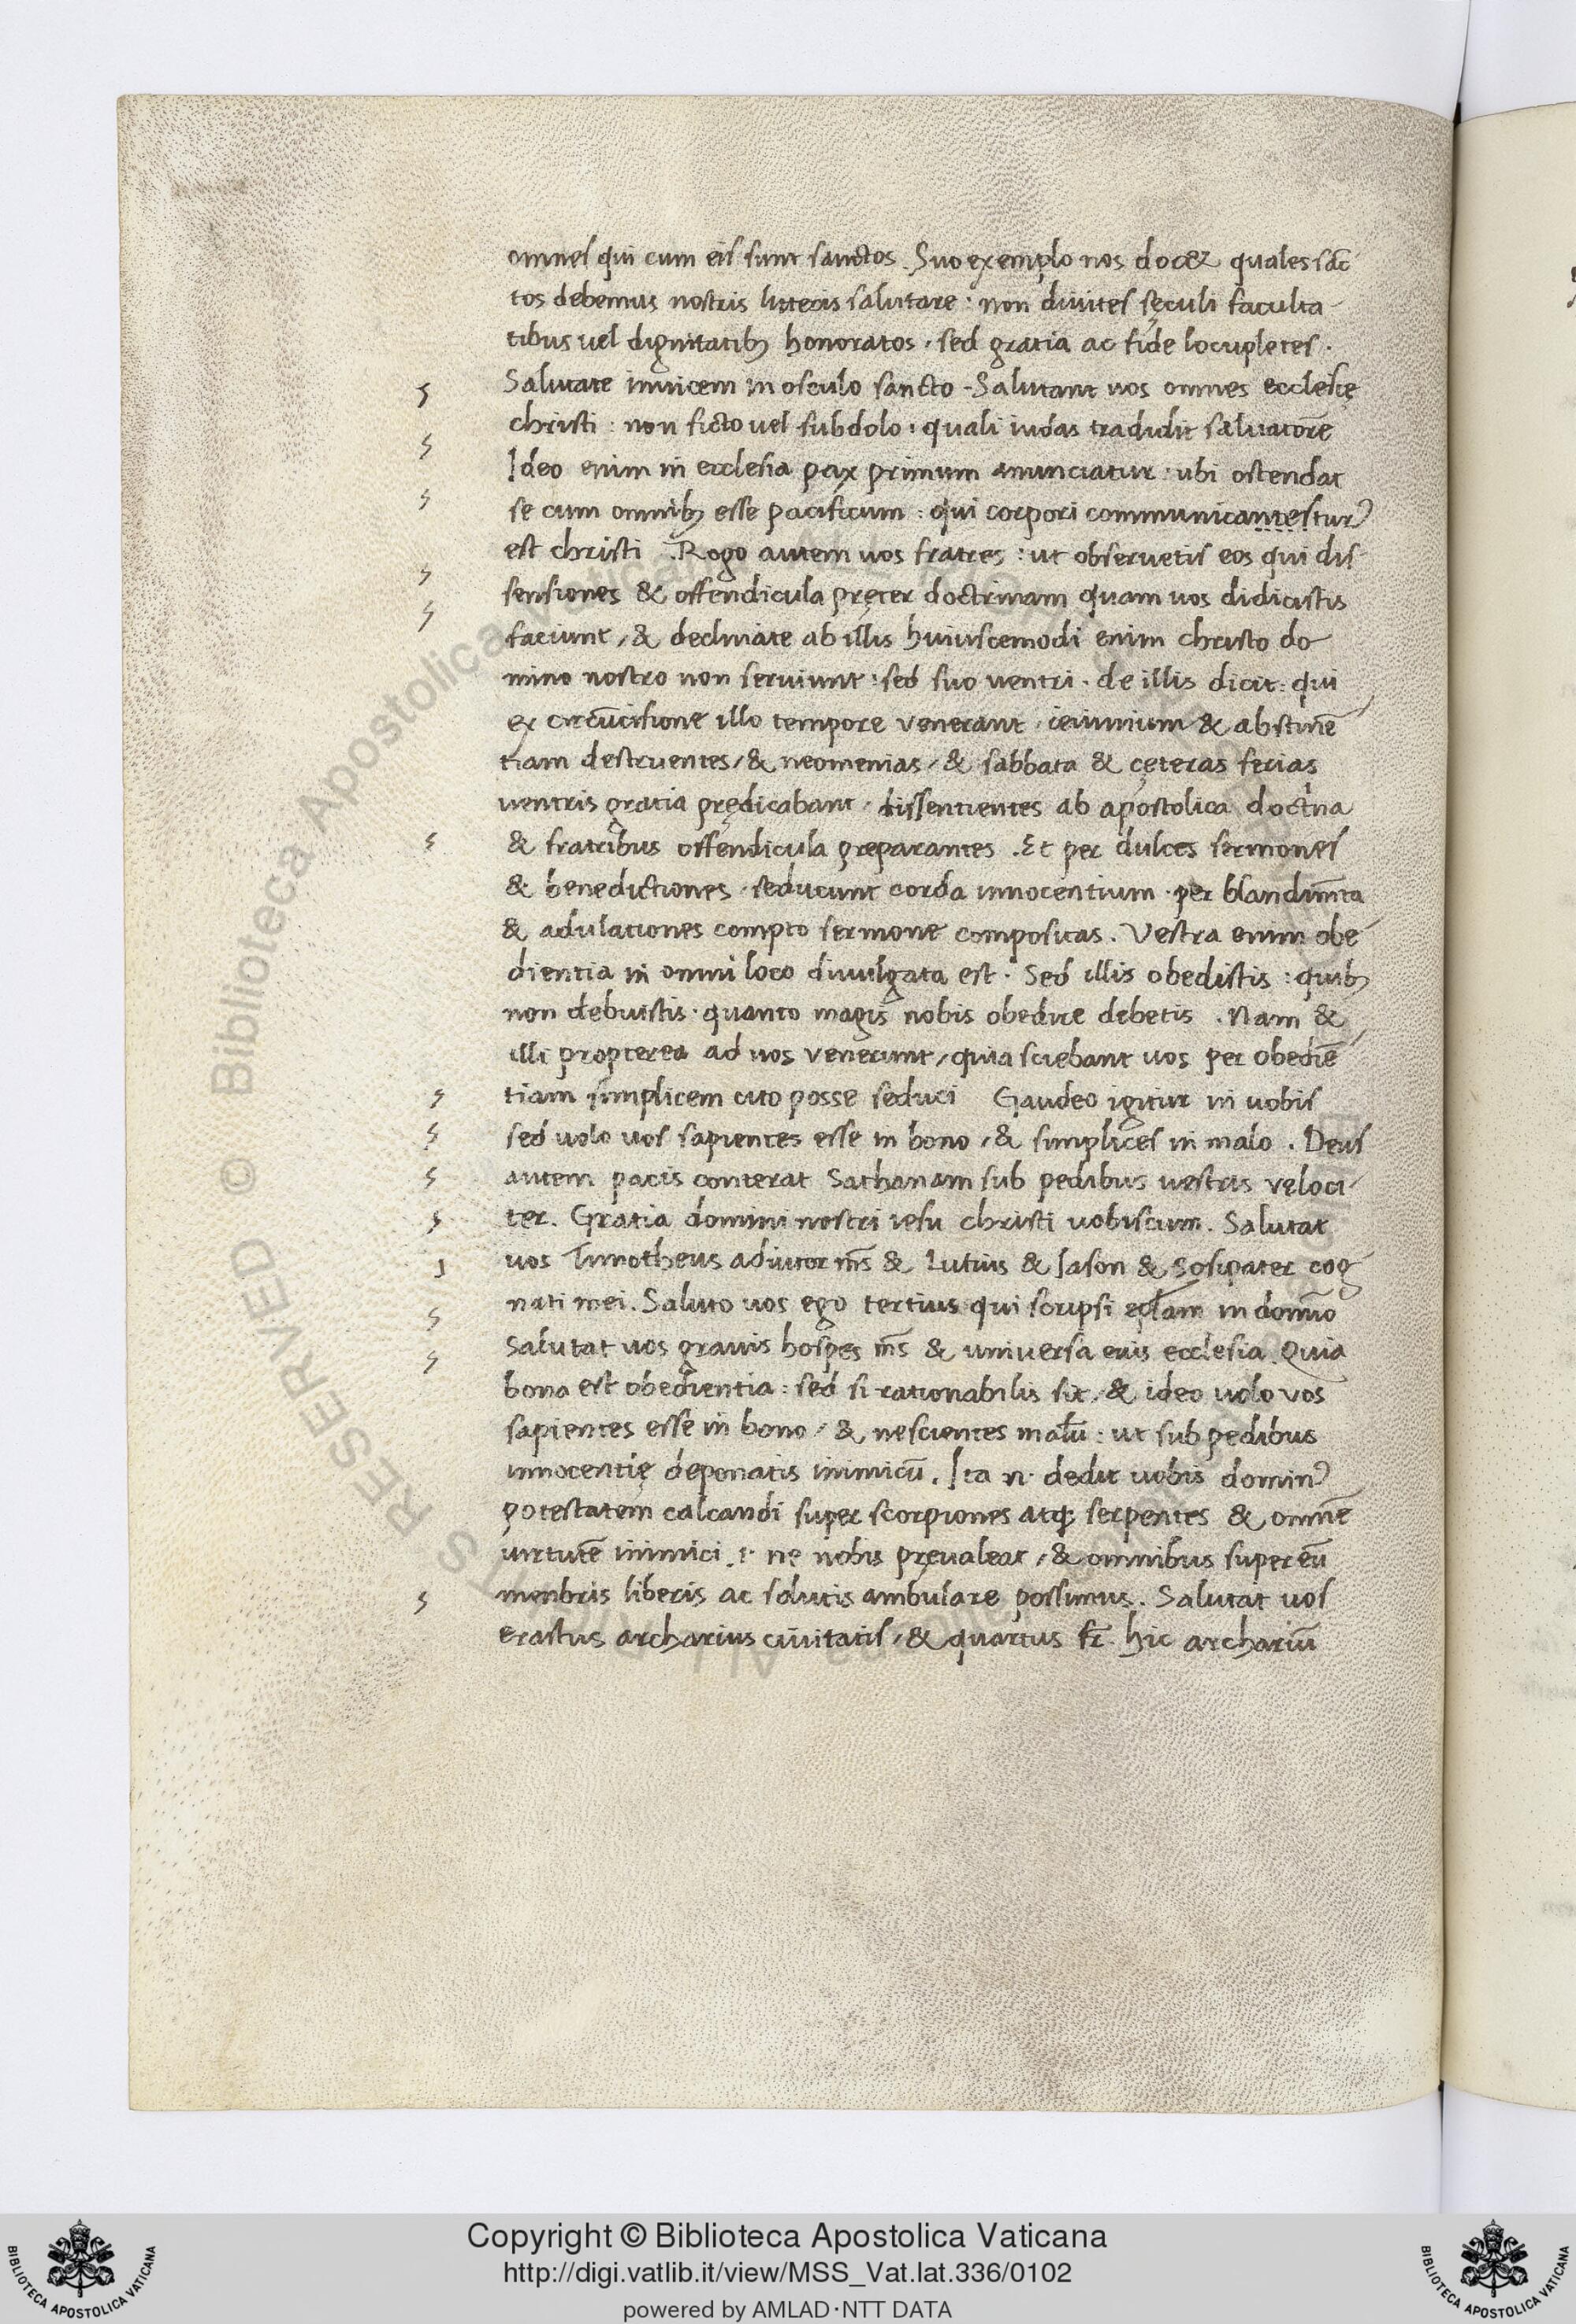 omnes qui cum eis sunt sanctos. Suo exemplo nos docet quales sāc
tos debemus nostris litteris salutare: non divites sęculi faculta
tibus vel dignitatibꝫ honoratos, sed gratia ac fide locupletes.
Salutate invicem in osculo sancto. Salutant vos omnes ecclesię
christi: non ficto vel subdolo: quali iudas tradidit salvatorē
Ideo enim in ecclesia pax primum anunciatur: ubi ostendat
se cum omnibꝫ esse pacificum: qui corpori communicantestur
est christi. Rogo autem vos fratres: ut observetis eos qui dis
sensiones & offendicula pręter doctrinam quam vos didicistis
faciunt, & declinate ab illis huiuscemodi enim christo do
mino nostro non serviunt: sed suo ventri. de illis dicit: qui
ex circūcisione illo tempore venerant, ieiunium & abstinē
tiam destruentes, & neomenias, & sabbata & cęteras ferias
ventris gratia prędicabant, dissentientes ab apostolica doct̄na
& fratribus offendicula preparantes. Et per dulces sermones
& benedictiones, seducunt corda innocentium. per blandim̄ta
& adulationes compto sermone compositas. Vestra enim obe
dientia in omni loco divulgata est. Sed illis obedistis: quibꝫ
non debuistis. quanto magis nobis obedire debetis. Nam &
illi propterea ad vos venerunt, quia sciebant vos per obediē
tiam simplicem cito posse seduci Gaudeo igitur in vobis
sed volo vos sapientes esse in bono, & simplices in malo. Deus
autem pacis conterat Sathanam sub pedibus vestris veloci
ter. Gratia domini nostri iesu christi vobiscum. Salutat
vos Timotheus adiutor m̄s & Lutius & Iason & Sosipater cog
nati mei. Saluto vos ego tertius qui scripsi ep̄lam in domīo
Salutat vos gravis hospes m̄s & universa eius ecclesia. Quia
bona est obedientia: sed si rationabilis sit, & ideo volo vos
sapientes esse in bono, & nescientes malū: ut sub pedibus
innocentię deponatis inimicū. Ita n. dedit vobis domin⁹
potestatem calcandi super scorpiones atqꝫ serpentes & omnē
virtutē inimici .i. ne nobis prevaleat, & omnibus super eū
menbris liberis ac solutis ambulare possimus. Salutat vos
erastus archarius civitatis, & quartus fr̄. hic archariū
Biblioteca Apostolica Vaticana
Copyright © Biblioteca Apostolica Vaticana
http://digi.vatlib.it/view/MSS_Vat.lat.336/0102
powered by AMLAD·NTT DATA
BIBLIOTECA APOSTOLICA VATICANA
BIBLIOTECA APOSTOLICA VATICANA